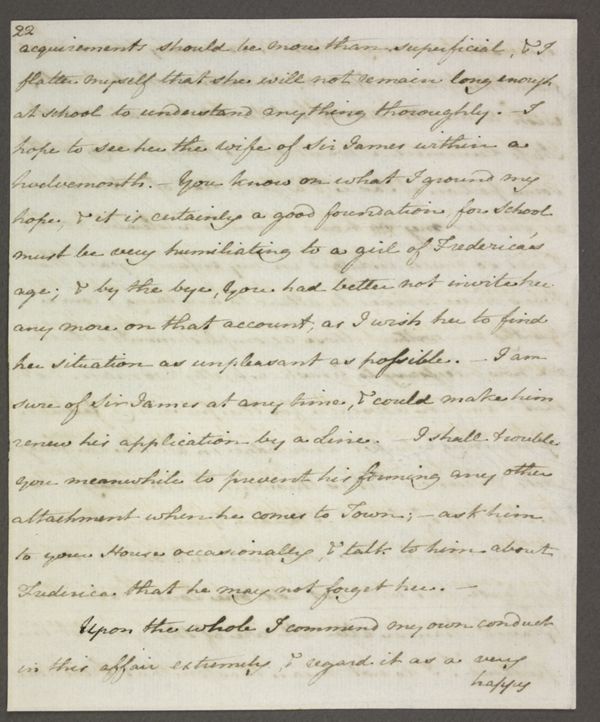 22
acquirements should be more than superficial, & I
flatter myself that she will not remain long enough
at school to understand anything thoroughly. - I
hope to see her the wife of Sir James within a
twelvemonth. - You know on what I ground my
hope, & it is certainly a good foundation, for School
must be very humiliating to a girl of Frederica's
age; & by the bye, you had better not invite her
any more on that account, as I wish her to find
her situation as unpleasant as possible. - I am
sure of Sir James at any time, & could make him
renew his application by a Line. - I shall trouble
you meanwhile to prevent his forming any other
attachment when he comes to Town; - ask him
to your House occasionally, & talk to him about
Frederica that he may not forget her. -
Upon the whole I commend my own conduct
in this affair extremely, & regard it as a very
happy